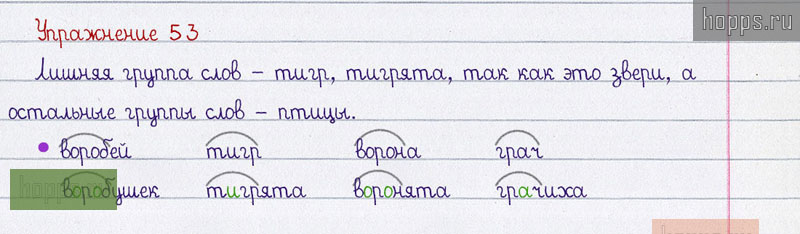 hopps.ru
Упражнение 53
Лишняя группа слов – тигр, тигрята, так как это звери, а
остальные группы слов – птицы.
• воробей тигр ворона грач
воробушек тигрята воронята грачиха